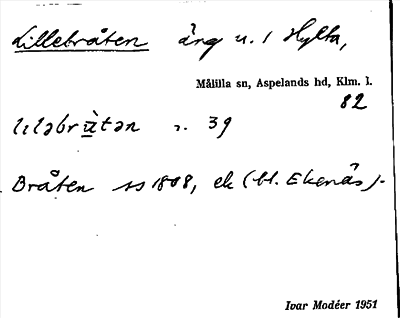 Lillebråten äng u. 1 Hylta,
Målilla sn, Aspelands hd, Klm. l.
82
39
Bråten ss 1808, ek (bl. Ekenäs).
Ivar Modéer 1951